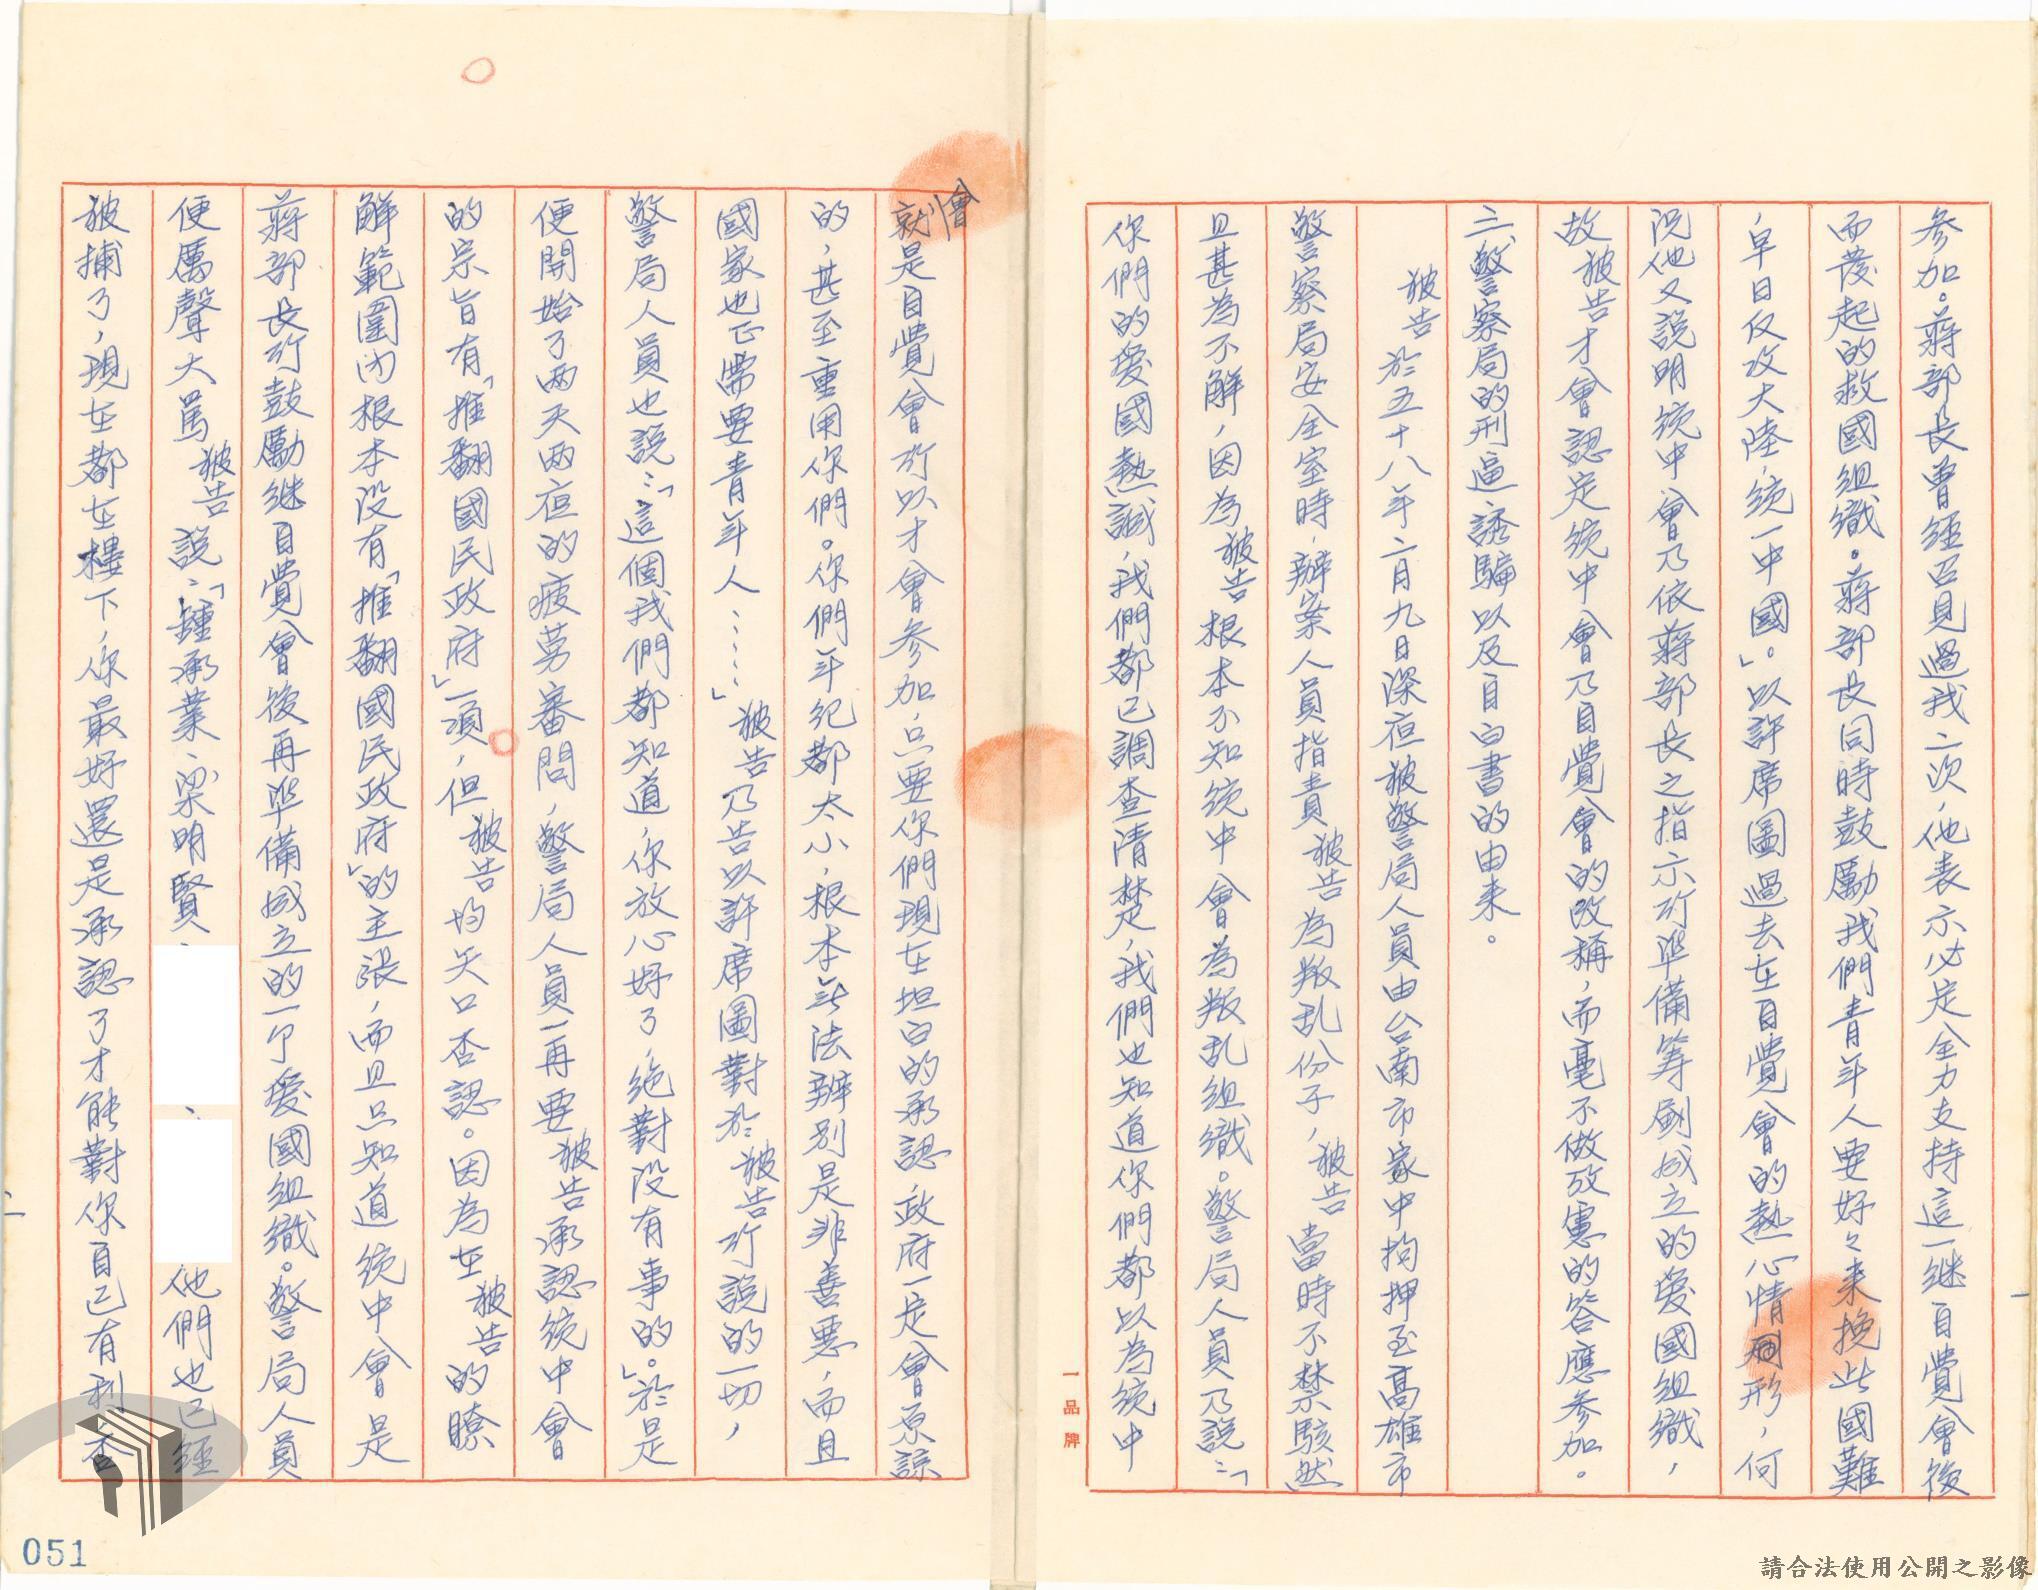 參加。蔣部長曾經召見過我二次，他表示必定全力支持這一继自覺會後
而發起的救國組織。蔣部長同時鼓勵我們青年人要好々来挽此國難
，早日反攻大陸，統一中國。」以許席圖過去在自覺會的熱心情形，何
況他又說明統中會乃依蔣部長之指示所準備筹劃成立的愛國組織，
故被告才會認定統中會乃自覺會的改稱，而毫不做攷慮的答應參加。
二、警察局的刑逼誘騙以及自白書的由来。
被告於五十八年二月九日深夜被警局人員由台南市家中拘押至高雄市
警察局安全室時，辦案人員指責被告為叛乱份子，被告當時不禁駭然
且甚為不解，因為被告根本不知統中會為叛乱組織。警局人員乃說：「
你們的愛國熱誠，我們都已調查清楚，我們也知道你們都以為統中
會
就是自覺會所以才會參加，只要你們現在坦白的承認，政府一定會原諒
的，甚至重用你們。你們年纪都太小，根本無法辨別是非善惡，而且
國家也正需要青年人……」被告乃告以許席圖對於被告所說的一切，
警局人員也說：「這個我們都知道，你放心好了，絶對没有事的。」於是
便開始了两天两夜的疲勞審問，警局人員一再要被告承認統中會
的宗旨有「推翻國民政府」一項，但被告均矢口否認。因為在被告的瞭
解範圍内根本没有「推翻國民政府」的主張，而且只知道統中會是
蔣部長所鼓勵继自覺會後再準備成立的一个愛國組織。警局人員
便厲聲大罵被告說：「鍾承業、梁明賢、
、
他們也已經
被捕了，現在都在樓下，你最好還是承認了才能對你自己有利，否
一品牌
051
請合法使用公開之影像